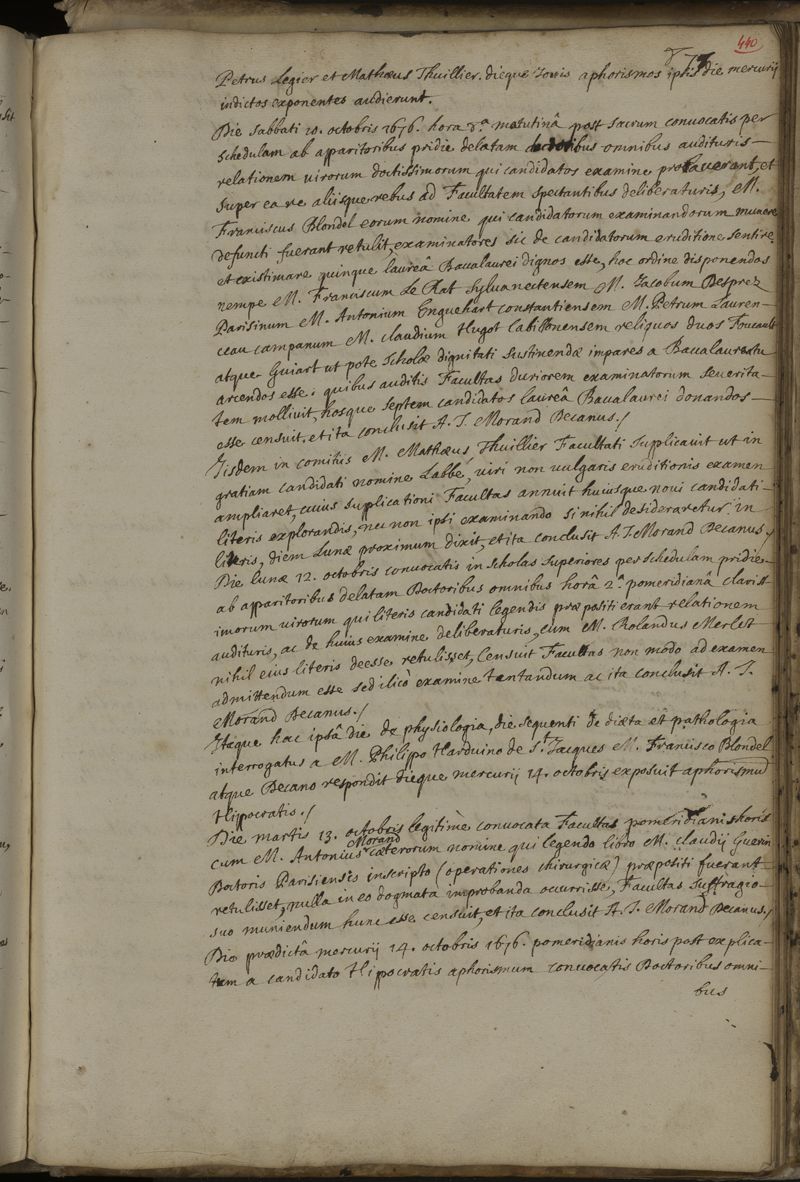 440
Petrus Legier et Mathæus Thuillier. dieque Jovis aphorismos ipsis die mercurij
indictos exponentes audierunt.
Die sabbati 10. octobris 1676. hora 8.ª matutinâ post sacrum convocatis per
schedulam ab apparitoribus pridie delatam doctoribus omnibus audituris
relationem virorum doctissimorum qui candidatos examine probaverant, et
super ea re aliisque rebus ad Facultatem spectantibus deliberaturis, M.
Franciscus Blondel eorum nomine qui candidatorum examinandorum munere
defuncti fuerant retulit, examinatores sic de candidatorum eruditione sentire
et existimare quinque laureâ Baccalaurei dignos esse, hoc ordine disponendos
nempe M. Franciscum Le Rat Sylvanectensem M. Jacobum Desprez
Parisinum M. Antonium Enguehart constantiensem M. Petrum Lauren-
ceau campanum M. claudium Hugot Cabillonensem reliquos duos Foucault
atque Guiart ut pote scholæ dignitati sustinendæ impares a Baccalaureatu
arcendos esse. quibus auditis Facultas duriorem examinatorum severita-
tem mollivit, hosque septem candidatos laureâ Baccalaurei donandos
esse censuit, et ita conclusit A. J. Morand Decanus./
Iisdem in comitiis M. Mathæus Thuillier Facultati supplicavit ut in
gratiam candidati nomine Labbé, viri non vulgaris eruditionis examen
ampliaret, cuius supplicationi Facultas annuit huiusque novi candidati
literis explorandis, nec non ipsi examinando si nihil desideraretur in
literis, diem Lunæ proximum dixit, et ita conclusit A. J. Morand Decanus./
Die lunæ 12. octobris convocatis in scholas superiores per schedulam pridie
ab apparitoribus delatam Doctoribus omnibus horâ 2.ª pomeridianâ clariss-
imorum virorum qui literis candidati legendis præpositi erant relationem
audituris, ac de huius examine deliberaturis, cum M. Rolandus Merlet
nihil eius literis deesse retulisset, Censuit Facultas non modo ad examen
admittendum esse sed ilicò examine tentandum ac ita conclusit A. J.
Morand Decanus./
Itaque hac ipsâ die de physiologia, die sequenti de diæta et pathologia
interrogatus a M. Philippo Harduino de S.t Jacques M. Francisco Blondel
atque Decano respondit dieque mercurij 14. octobris exposuit aphorismum
Hippocratis./
Die martis 13. octobris legitimè convocata Facultas pomeridianis horis
cum M. Antonius Morand cæterorum nomine qui legendo libro M. claudii Guerin
Doctoris Parisiensis inscripto (operationes chirurgicæ) præpositi fuerant
retulisset, nulla in eo dogmata improbanda occurrisse, Facultas suffragio
suo muniendum hunc esse censuit, et ita conclusit A. J. Morand Decanus./
Die prædictâ mercurij 14. octobris 1676. pomeridianis horis post explica-
tum a candidato Hippocratis aphorismum convocatis Doctoribus omni-
bus